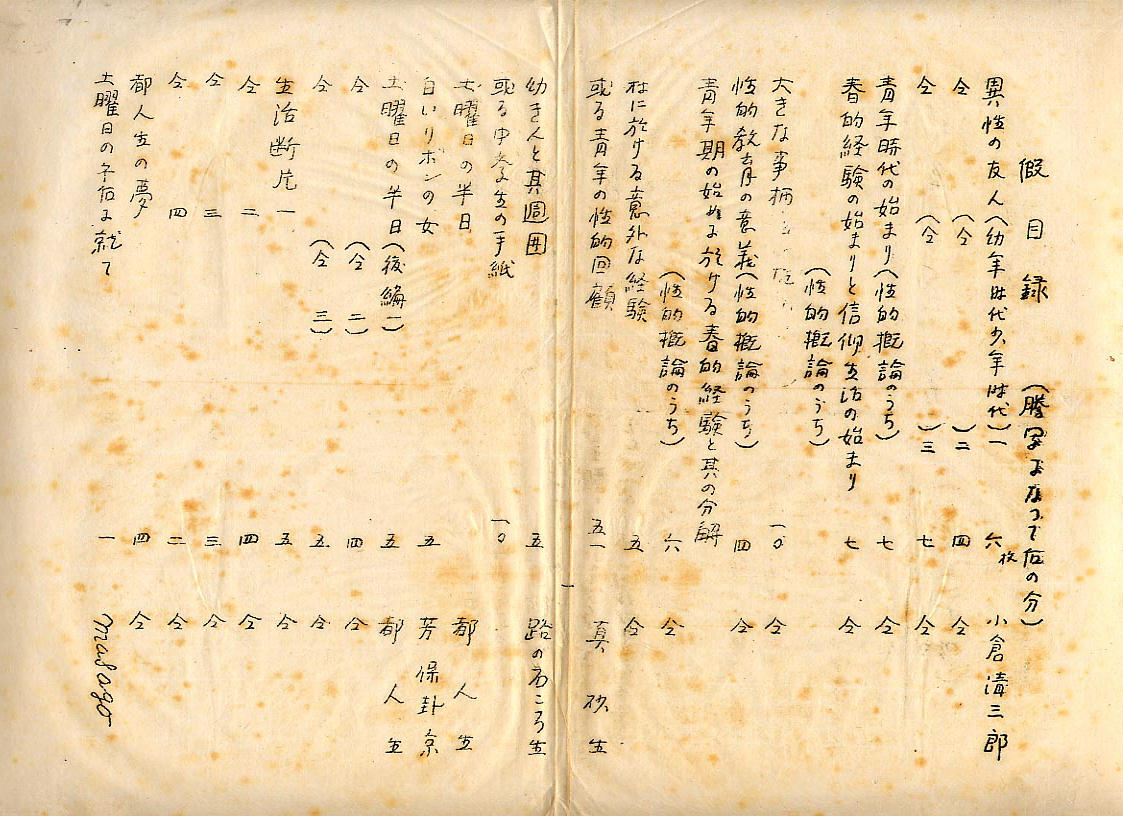 假目録（謄写になつて居の分）
異性の友人（幼年時代少年時代）一 六枚 小倉清三郎
仝（仝）二 四 仝
仝（仝）三 七 仝
青年時代の始まり（性的概論のうち） 七 仝
春的経験の始まりと信仰生活の始まり 七 仝
大きな事柄 （性的概論のうち） 一〇 仝
性的教育の意義（性的概論のうち） 四 仝
青年期の始めに於ける春的経験と其の分解
（性的概論のうち） 六 仝
村に於ける意外な経験 五 仝
或る青年の性的回顧 五一 真砂生
一
幼き人と其週囲 五 路の石ころ生
或る中学生の手紙 一〇
土曜日の半日 都人生
白いリボンの女 五 芳保卦京
土曜日の半日（後編一） 五 都人生
仝（仝二） 四 仝
仝（仝三） 五 仝
生活断片 一 五 仝
仝 二 四 仝
仝 三 三 仝
仝 四 二 仝
都人生の夢 四 仝
土曜日の不在に就て 一 Masago